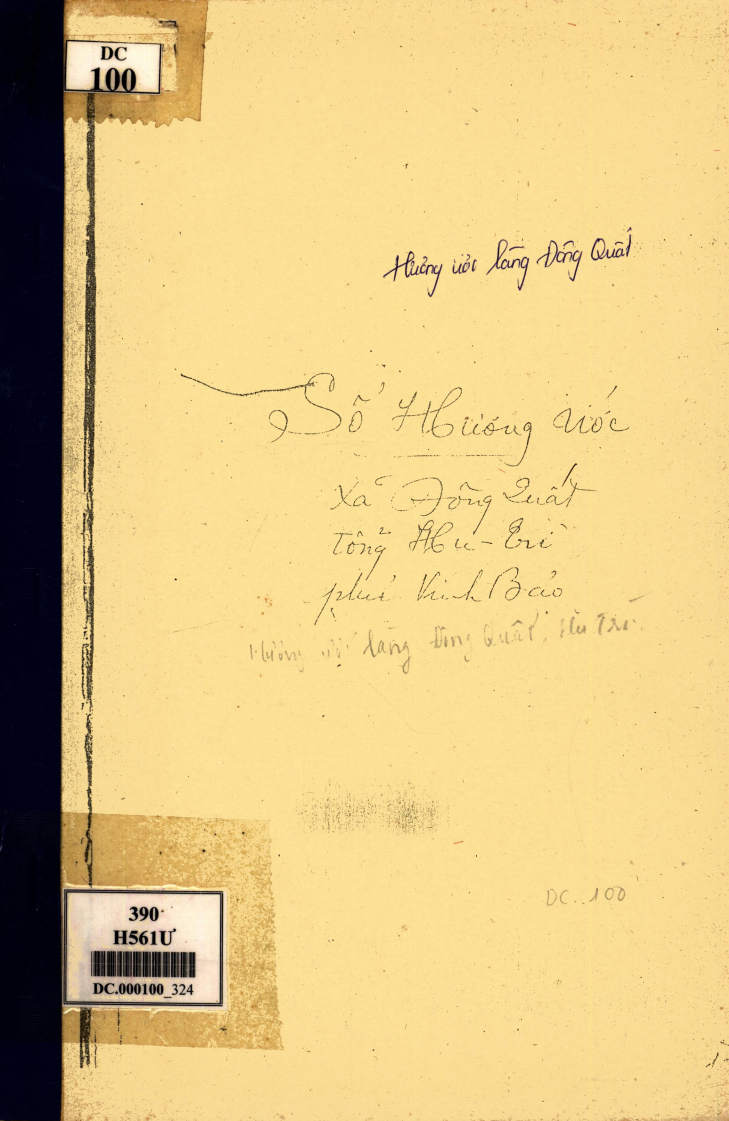 DC
100
Hương ước làng Đông Quất
Sổ Hương ước
xã Đông Quất
tổng Hu-Trì
phủ Vĩnh Bảo
Hương ước làng Đông Quất, Hu Trì.
DC. 100
390
H561Ư
DC.000100_324